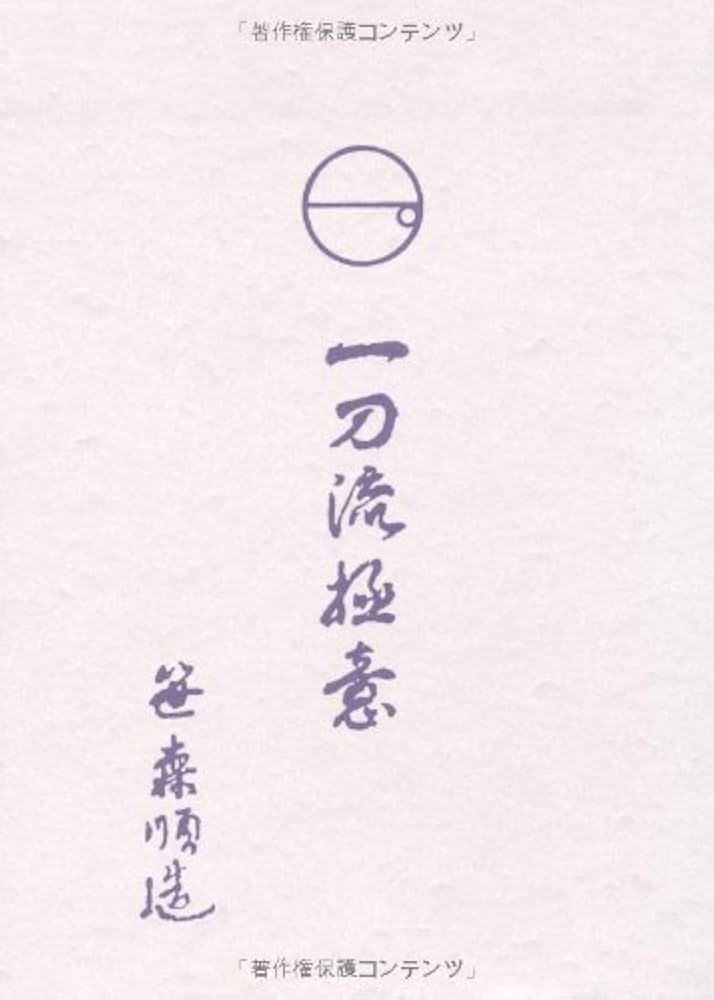 「著作権保護コンテンツ」
一刀流極意
笹森順造
「著作権保護コンテンツ」